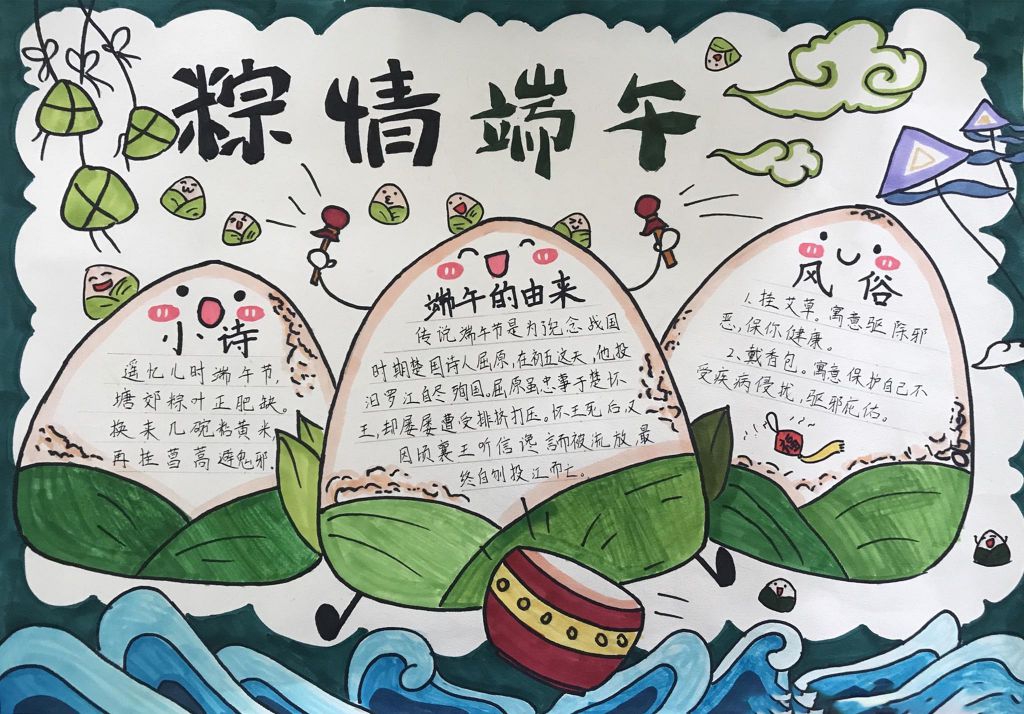 粽情端午
小诗
遥忆儿时端午节,
塘郊粽叶正肥缺。
换来几碗粘黄米,
再挂菖蒿避鬼邪.
端午的由来
传说端午节是为了纪念战国
时期楚国诗人屈原,在初五这天,他投
汨罗江自尽殉国。屈原虽忠事于楚怀
王,却屡屡遭受排挤打压。怀王死后又
因顷襄王听信谗言而被流放,最
终自刎投江而亡。
风俗
1.挂艾草。寓意驱除邪
恶,保你健康。
2、戴香包。寓意保护自己不
受疾病侵扰,驱邪庇佑。